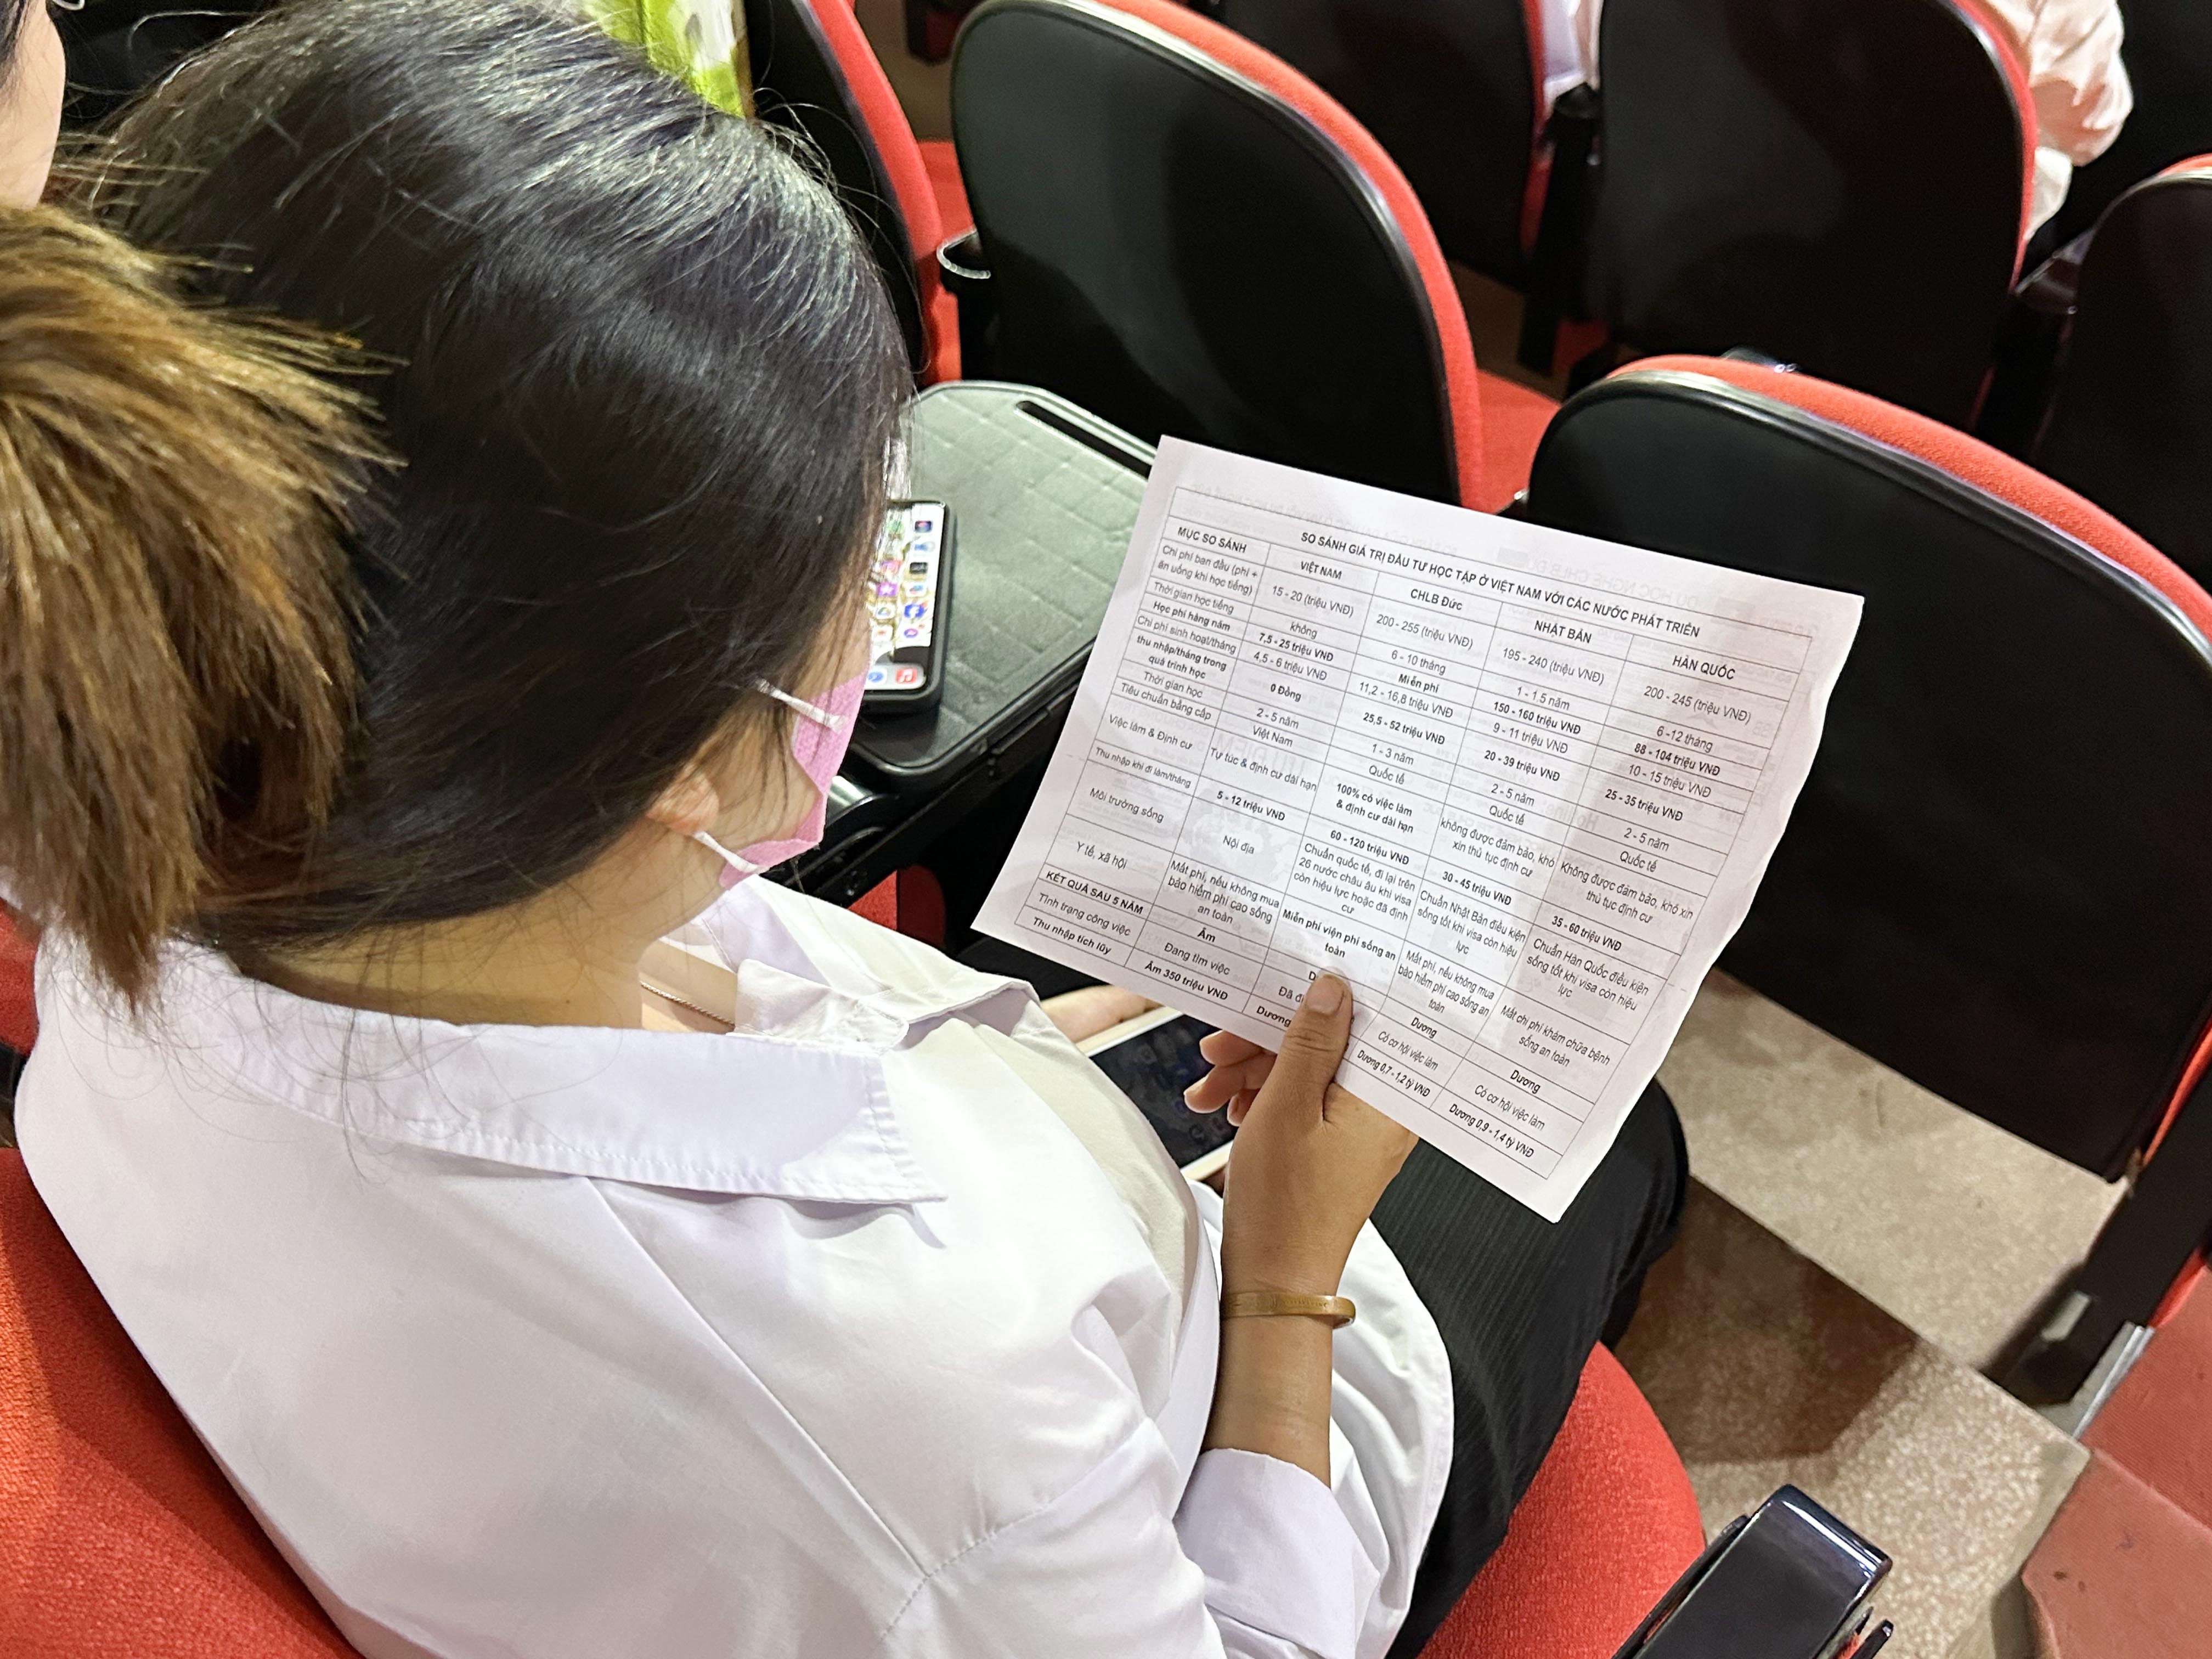 SO SÁNH GIÁ TRỊ ĐẦU TƯ HỌC TẬP Ở VIỆT NAM VỚI CÁC NƯỚC PHÁT TRIỂN
MỤC SO SÁNH VIỆT NAM CHLB Đức NHẬT BẢN HÀN QUỐC
Chi phí ban đầu (phí + ăn uống khi học tiếng) 15 - 20 (triệu VNĐ) 200 - 255 (triệu VNĐ) 195 - 240 (triệu VNĐ) 200 - 245 (triệu VNĐ)
Thời gian học tiếng không 6 - 10 tháng 1 - 1.5 năm 6 -12 tháng
Học phí hàng năm 7,5 - 25 triệu VNĐ Miễn phí 150 - 160 triệu VNĐ 88 - 104 triệu VNĐ
Chi phí sinh hoạt/tháng 4,5 - 6 triệu VNĐ 11,2 - 16,8 triệu VNĐ 9 - 11 triệu VNĐ 10 - 15 triệu VNĐ
thu nhập/tháng trong quá trình học 0 Đồng 25,5 - 52 triệu VNĐ 20 - 39 triệu VNĐ 25 - 35 triệu VNĐ
Thời gian học 2 - 5 năm 1 - 3 năm 2 - 5 năm 2 - 5 năm
Tiêu chuẩn bằng cấp Việt Nam Quốc tế Quốc tế Quốc tế
Việc làm & Định cư Tự túc & định cư dài hạn 100% có việc làm & định cư dài hạn không được đảm bảo, khó xin thủ tục định cư Không được đảm bảo, khó xin thủ tục định cư
Thu nhập khi đi làm/tháng 5 - 12 triệu VNĐ 60 - 120 triệu VNĐ 30 - 45 triệu VNĐ 35 - 60 triệu VNĐ
Môi trường sống Nội địa Chuẩn quốc tế, đi lại trên 26 nước châu âu khi visa còn hiệu lực hoặc đã định cư Chuẩn Nhật Bản điều kiện sống tốt khi visa còn hiệu lực Chuẩn Hàn Quốc điều kiện sống tốt khi visa còn hiệu lực
Y tế, xã hội Mất phí, nếu không mua bảo hiểm phí cao sống an toàn Miễn phí viện phí sống an toàn Mất phí, nếu không mua bảo hiểm phí cao sống an toàn Mất chi phí khám chữa bệnh sống an toàn
KẾT QUẢ SAU 5 NĂM Âm Dương Dương
Tình trạng công việc Đang tìm việc Đã Có cơ hội việc làm Có cơ hội việc làm
Thu nhập tích lũy Âm 350 triệu VNĐ Dương Dương 0,7 - 1,2 tỷ VNĐ Dương 0,9 - 1,4 tỷ VNĐ